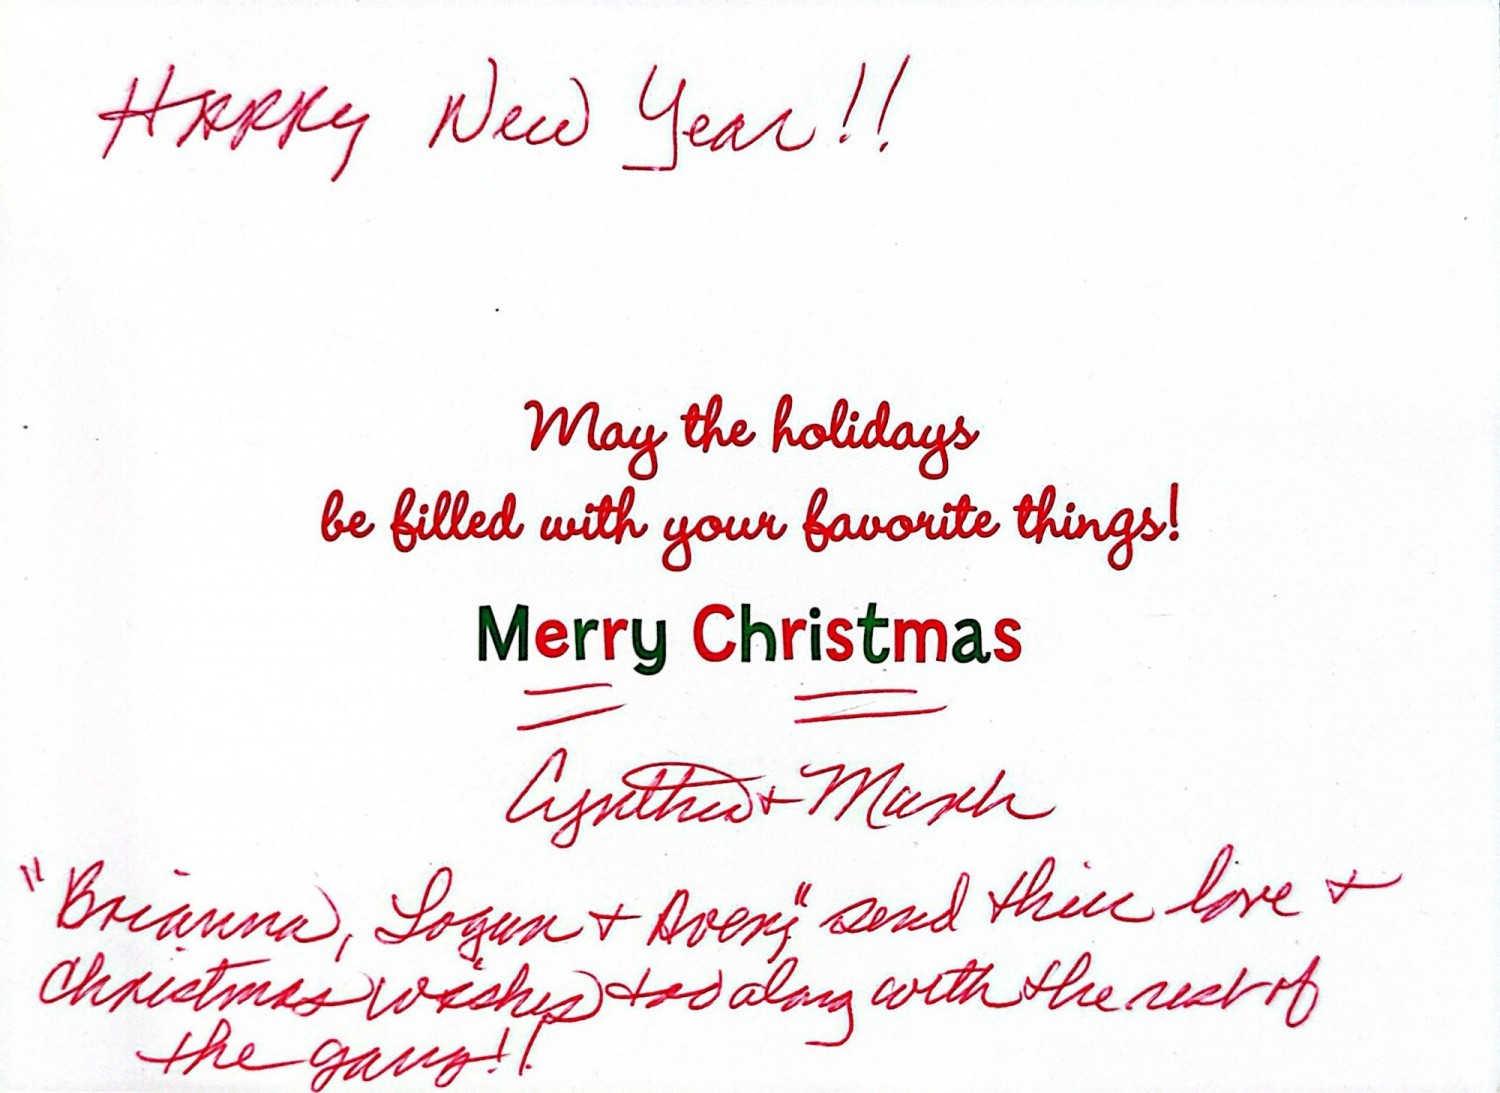 Happy New Year!!
May the holidays
be filled with your favorite things!
Merry Christmas
Cynthia + Mark
"Brianna, Logan + Avery" send their love +
Christmas wishes too along with the rest of
the gang!!